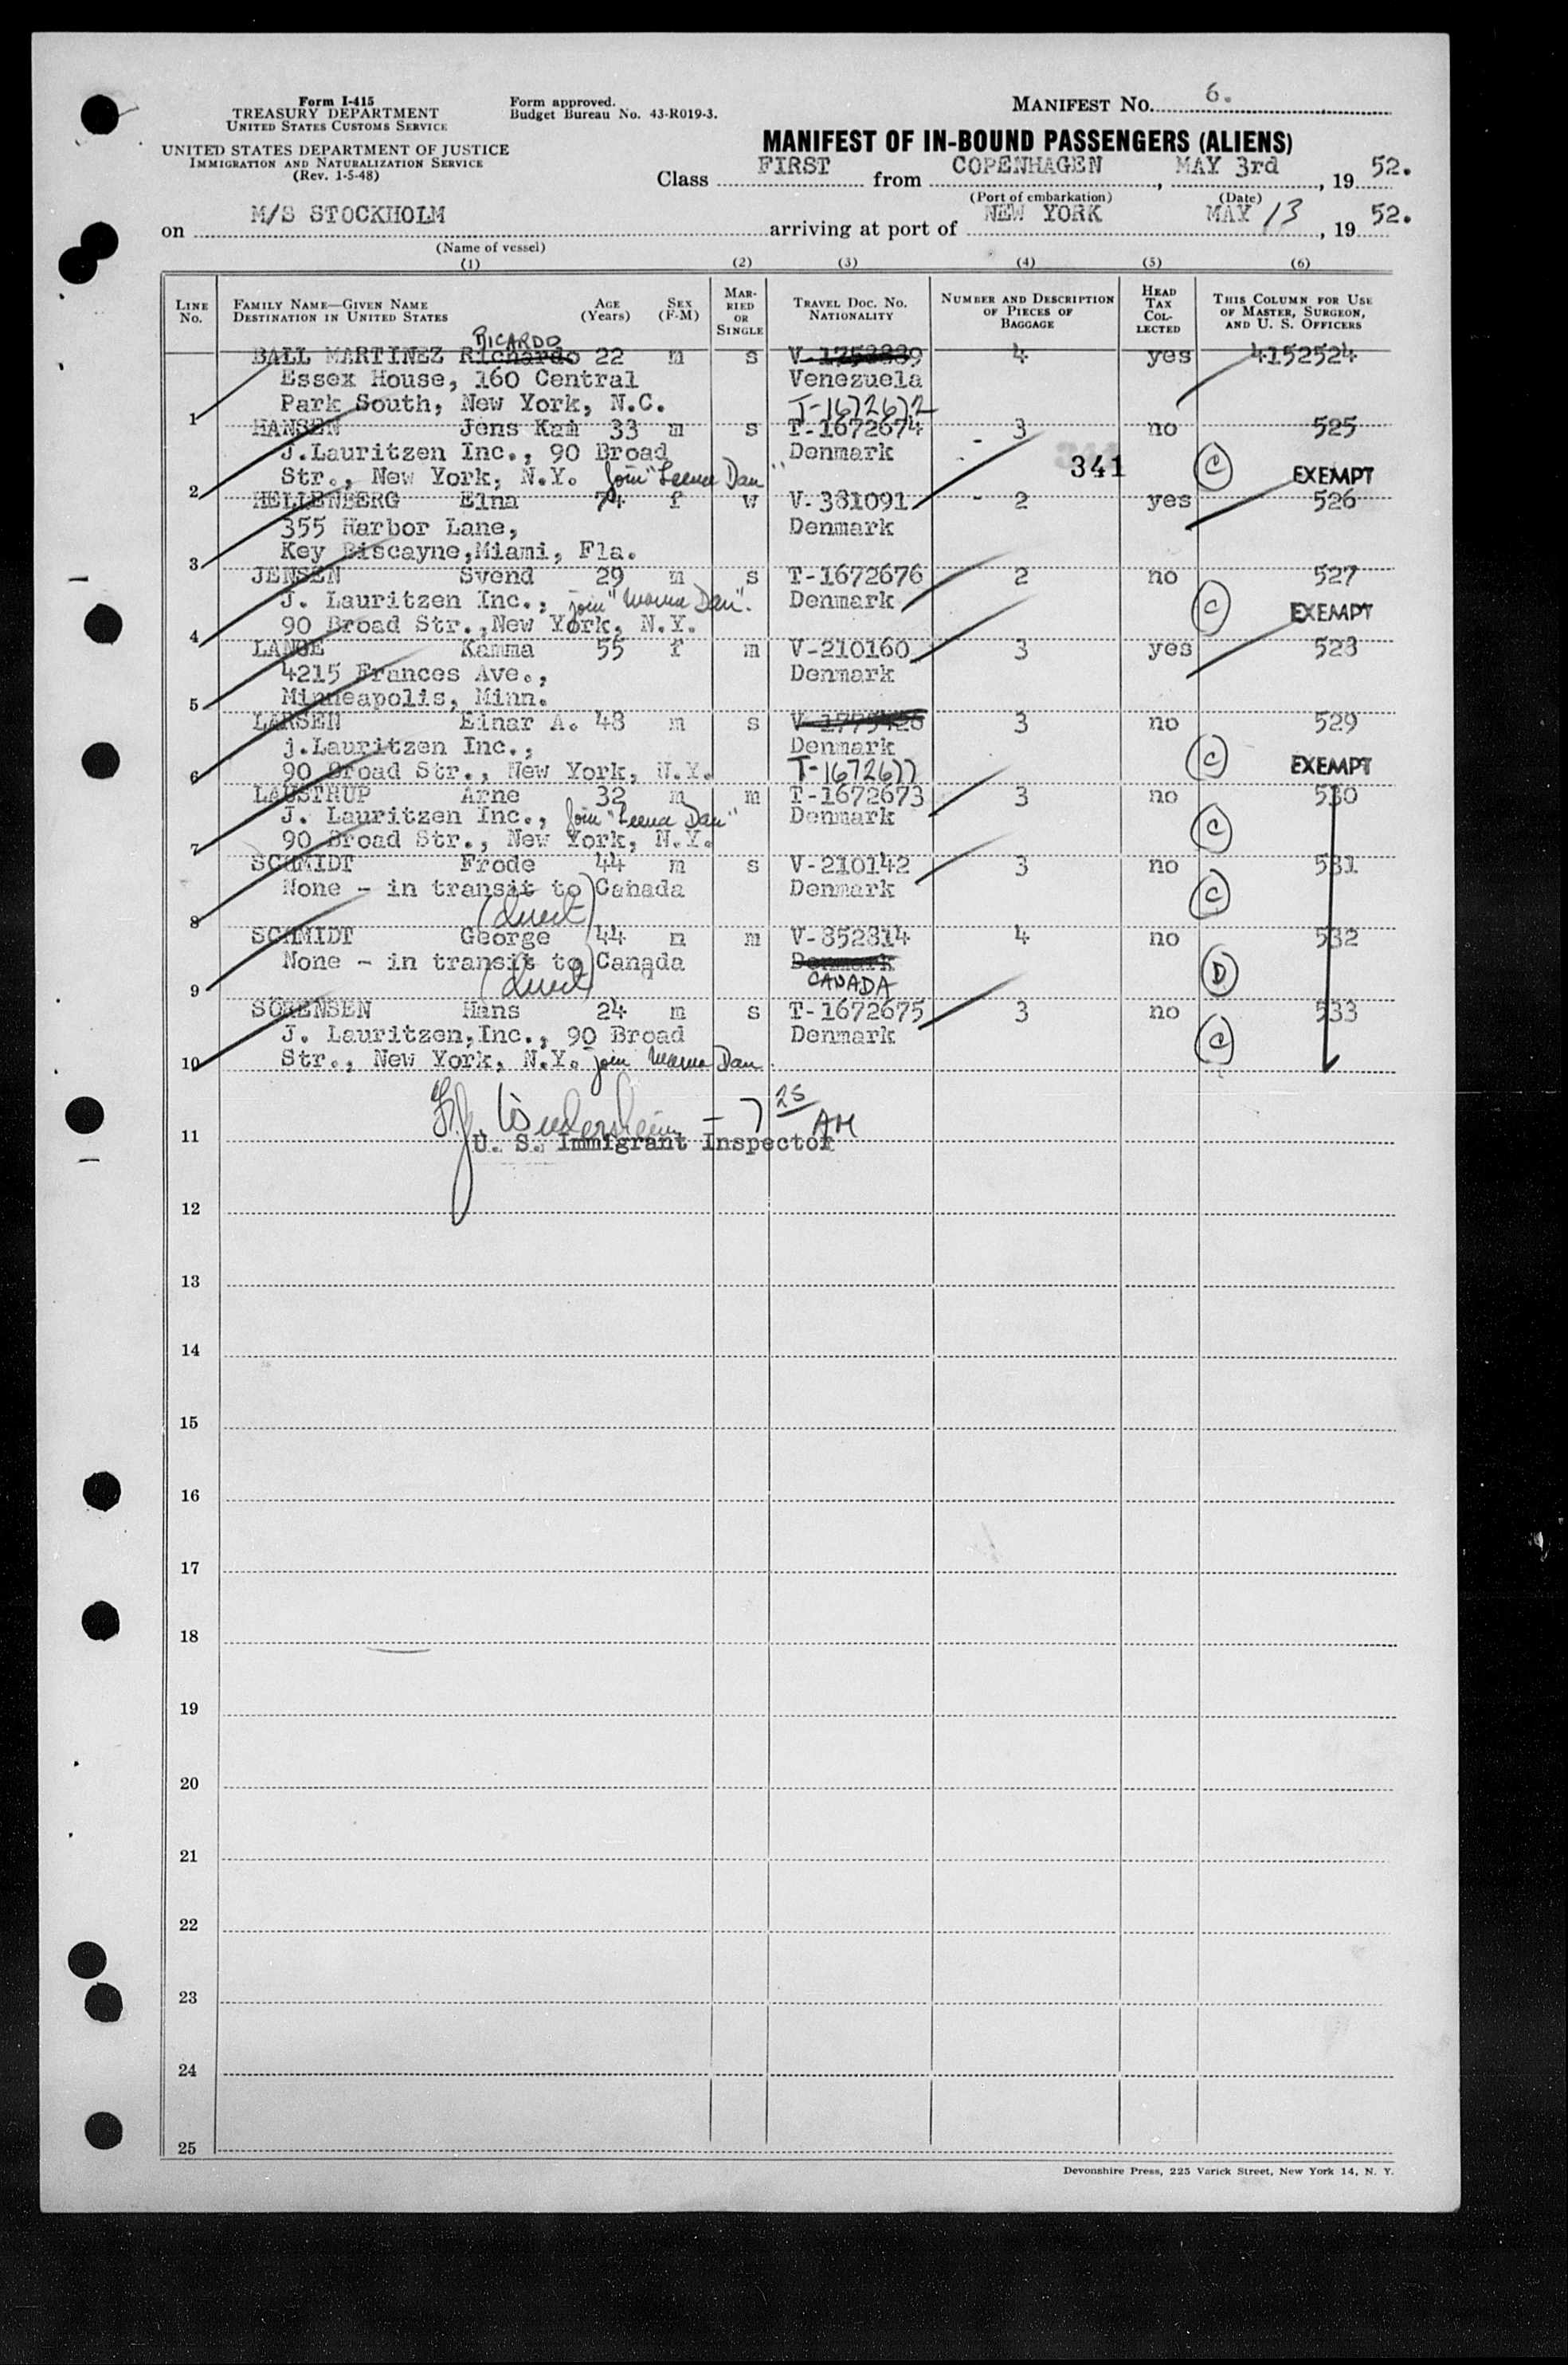 Form I-415
TREASURY DEPARTMENT
UNITED STATES CUSTOMS SERVICE
UNITED STATES DEPARTMENT OF JUSTICE
IMMIGRATION AND NATURALIZATION SERVICE
(Rev. 1-5-48)
Form approved.
Budget Bureau No. 43-R019-3.
MANIFEST NO. 6.
MANIFEST OF IN-BOUND PASSENGERS (ALIENS)
Class FIRST from COPENHAGEN, MAY 3rd, 19 52.
(Port of embarkation) (Date)
on M/S STOCKHOLM arriving at port of NEW YORK MAY 13, 19 52.
(Name of vessel)
(1) (2) (3) (4) (5) (6)
LINE No. FAMILY NAME—GIVEN NAME DESTINATION IN UNITED STATES AGE (Years) SEX (F-M) MARRIED OR SINGLE TRAVEL DOC. NO. NATIONALITY NUMBER AND DESCRIPTION OF PIECES OF BAGGAGE HEAD TAX COLLECTED THIS COLUMN FOR USE OF MASTER, SURGEON, AND U. S. OFFICERS
RICARDO
BALL MARTINEZ Richardo 22 m s V- 4 yes 4152524
Essex House, 160 Central Venezuela
1 Park South, New York, N.C. T-1672672
HANSEN Jens Kam 33 m s T-1672674 3 no 525
J.Lauritzen Inc., 90 Broad Denmark 341 C EXEMPT
2 Str., New York, N.Y. Join "Leena Dan"
HELLENBERG Elna 74 f w V-381091 2 yes 526
355 Harbor Lane, Denmark
3 Key Biscayne,Miami, Fla.
JENSEN Svend 29 m s T-1672676 2 no 527
J. Lauritzen Inc., join "Mama Dan". Denmark C EXEMPT
4 90 Broad Str.,New York, N.Y.
LANGE Kamma 55 f m V-210160 3 yes 528
4215 Frances Ave., Denmark
5 Minneapolis, Minn.
LARSEN Einar A. 48 m s V-1775426 3 no 529
j.Lauritzen Inc., Denmark C
6 90 Broad Str., New York, N.Y. T-1672677 EXEMPT
LAUSTRUP Arne 32 m m T-1672673 3 no 530
J. Lauritzen Inc., Join "Leena Dan" Denmark C
7 90 Broad Str., New York, N.Y.
SCHMIDT Frode 44 m s V-210142 3 no 531
None - in transit to Canada Denmark C
8 (direct)
SCHMIDT George 44 m m V-852814 4 no 532
None - in transit to Canada Denmark D
9 (direct) CANADA
SORENSEN Hans 24 m s T-1672675 3 no 533
J. Lauritzen,Inc., 90 Broad Denmark C
10 Str., New York, N.Y. join Mama Dan.
7 25 AM
11 U. S. Immigrant Inspector
12
13
14
15
16
17
18
19
20
21
22
23
24
25
Devonshire Press, 225 Varick Street, New York 14, N. Y.